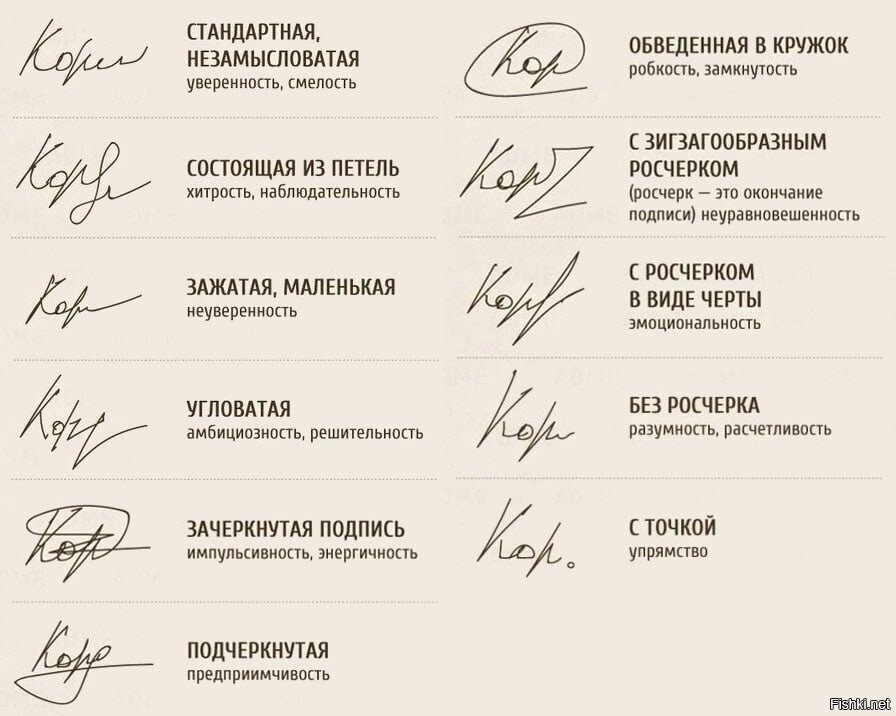 Кори
СТАНДАРТНАЯ,
НЕЗАМЫСЛОВАТАЯ
уверенность, смелость
Кор
СОСТОЯЩАЯ ИЗ ПЕТЕЛЬ
хитрость, наблюдательность
Кор
ЗАЖАТАЯ, МАЛЕНЬКАЯ
неуверенность
Кор
УГЛОВАТАЯ
амбициозность, решительность
Кор
ЗАЧЕРКНУТАЯ ПОДПИСЬ
импульсивность, энергичность
Кор
ПОДЧЕРКНУТАЯ
предприимчивость
Кор
ОБВЕДЕННАЯ В КРУЖОК
робкость, замкнутость
Кор
С ЗИГЗАГООБРАЗНЫМ
РОСЧЕРКОМ
(росчерк — это окончание
подписи) неуравновешенность
Кор
С РОСЧЕРКОМ
В ВИДЕ ЧЕРТЫ
эмоциональность
Кор
БЕЗ РОСЧЕРКА
разумность, расчетливость
Кор.
С ТОЧКОЙ
упрямство
Fishki.net